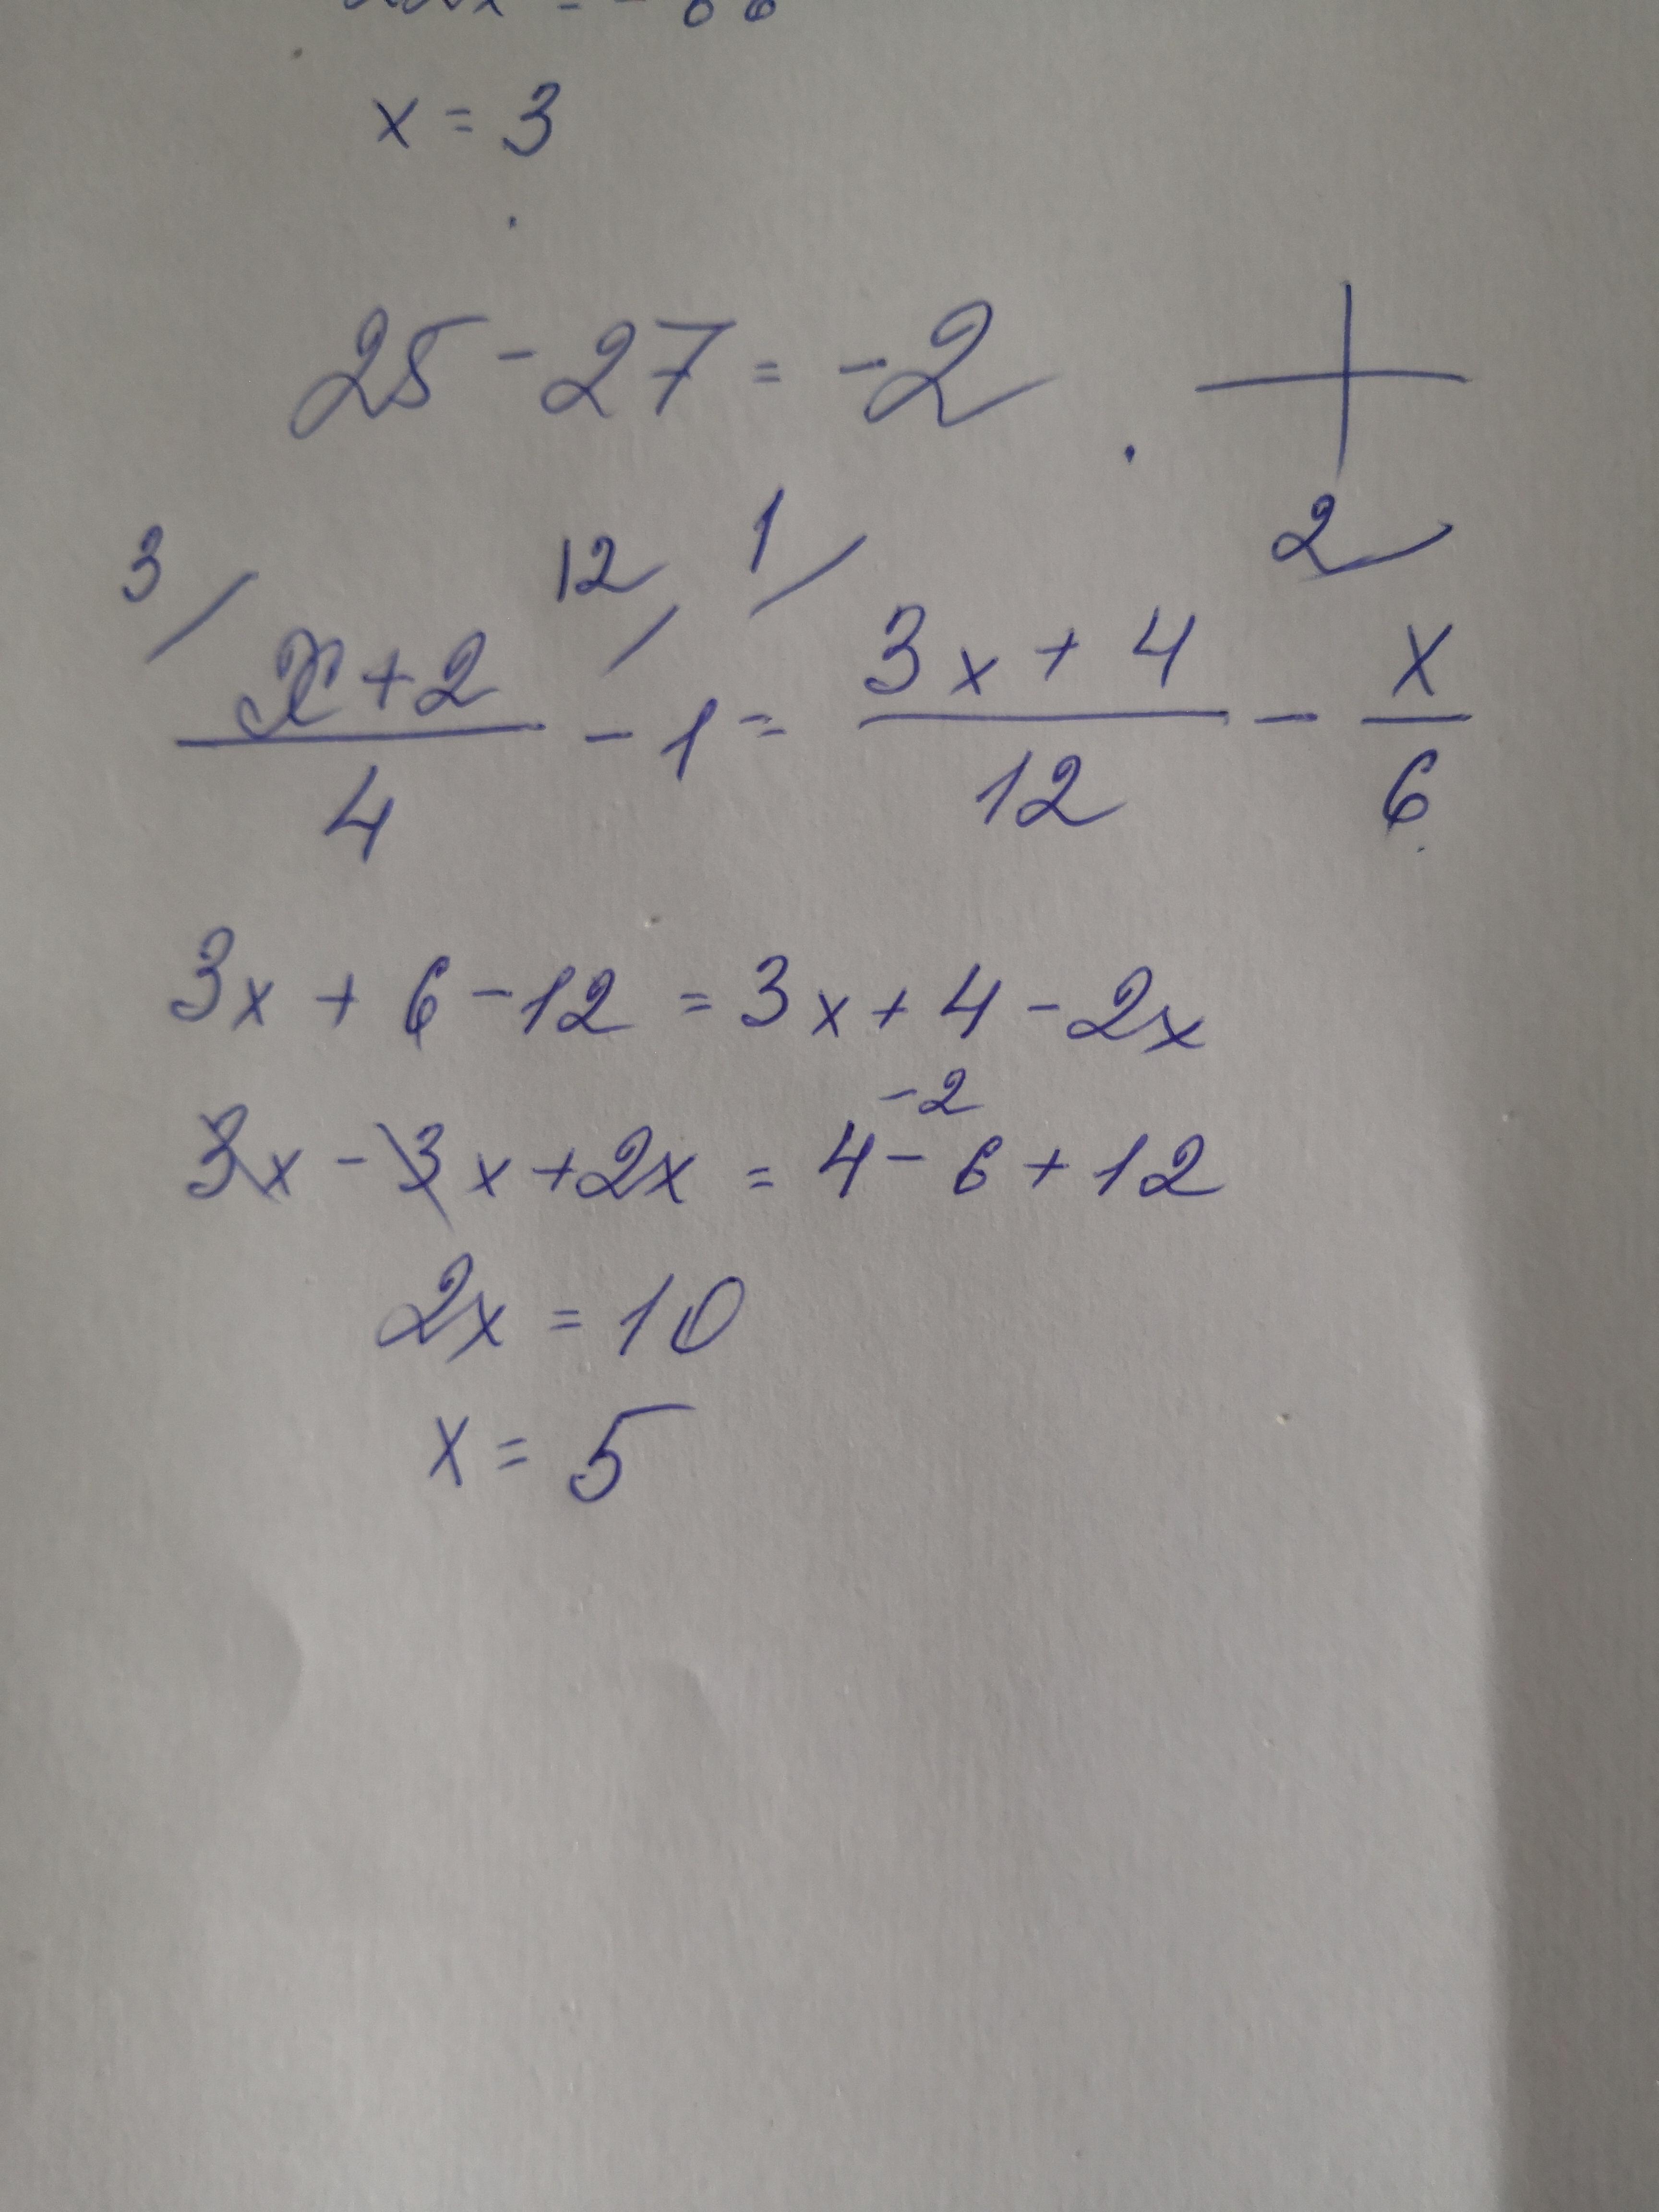 x = 3
25 - 27 = -2
3/ 12/ 1/ 2/
x+2/4 - 1 = 3x + 4/12 - x/6
3x + 6 - 12 = 3x + 4 - 2x
-2
3x - 3x + 2x = 4 - 6 + 12
2x = 10
x = 5